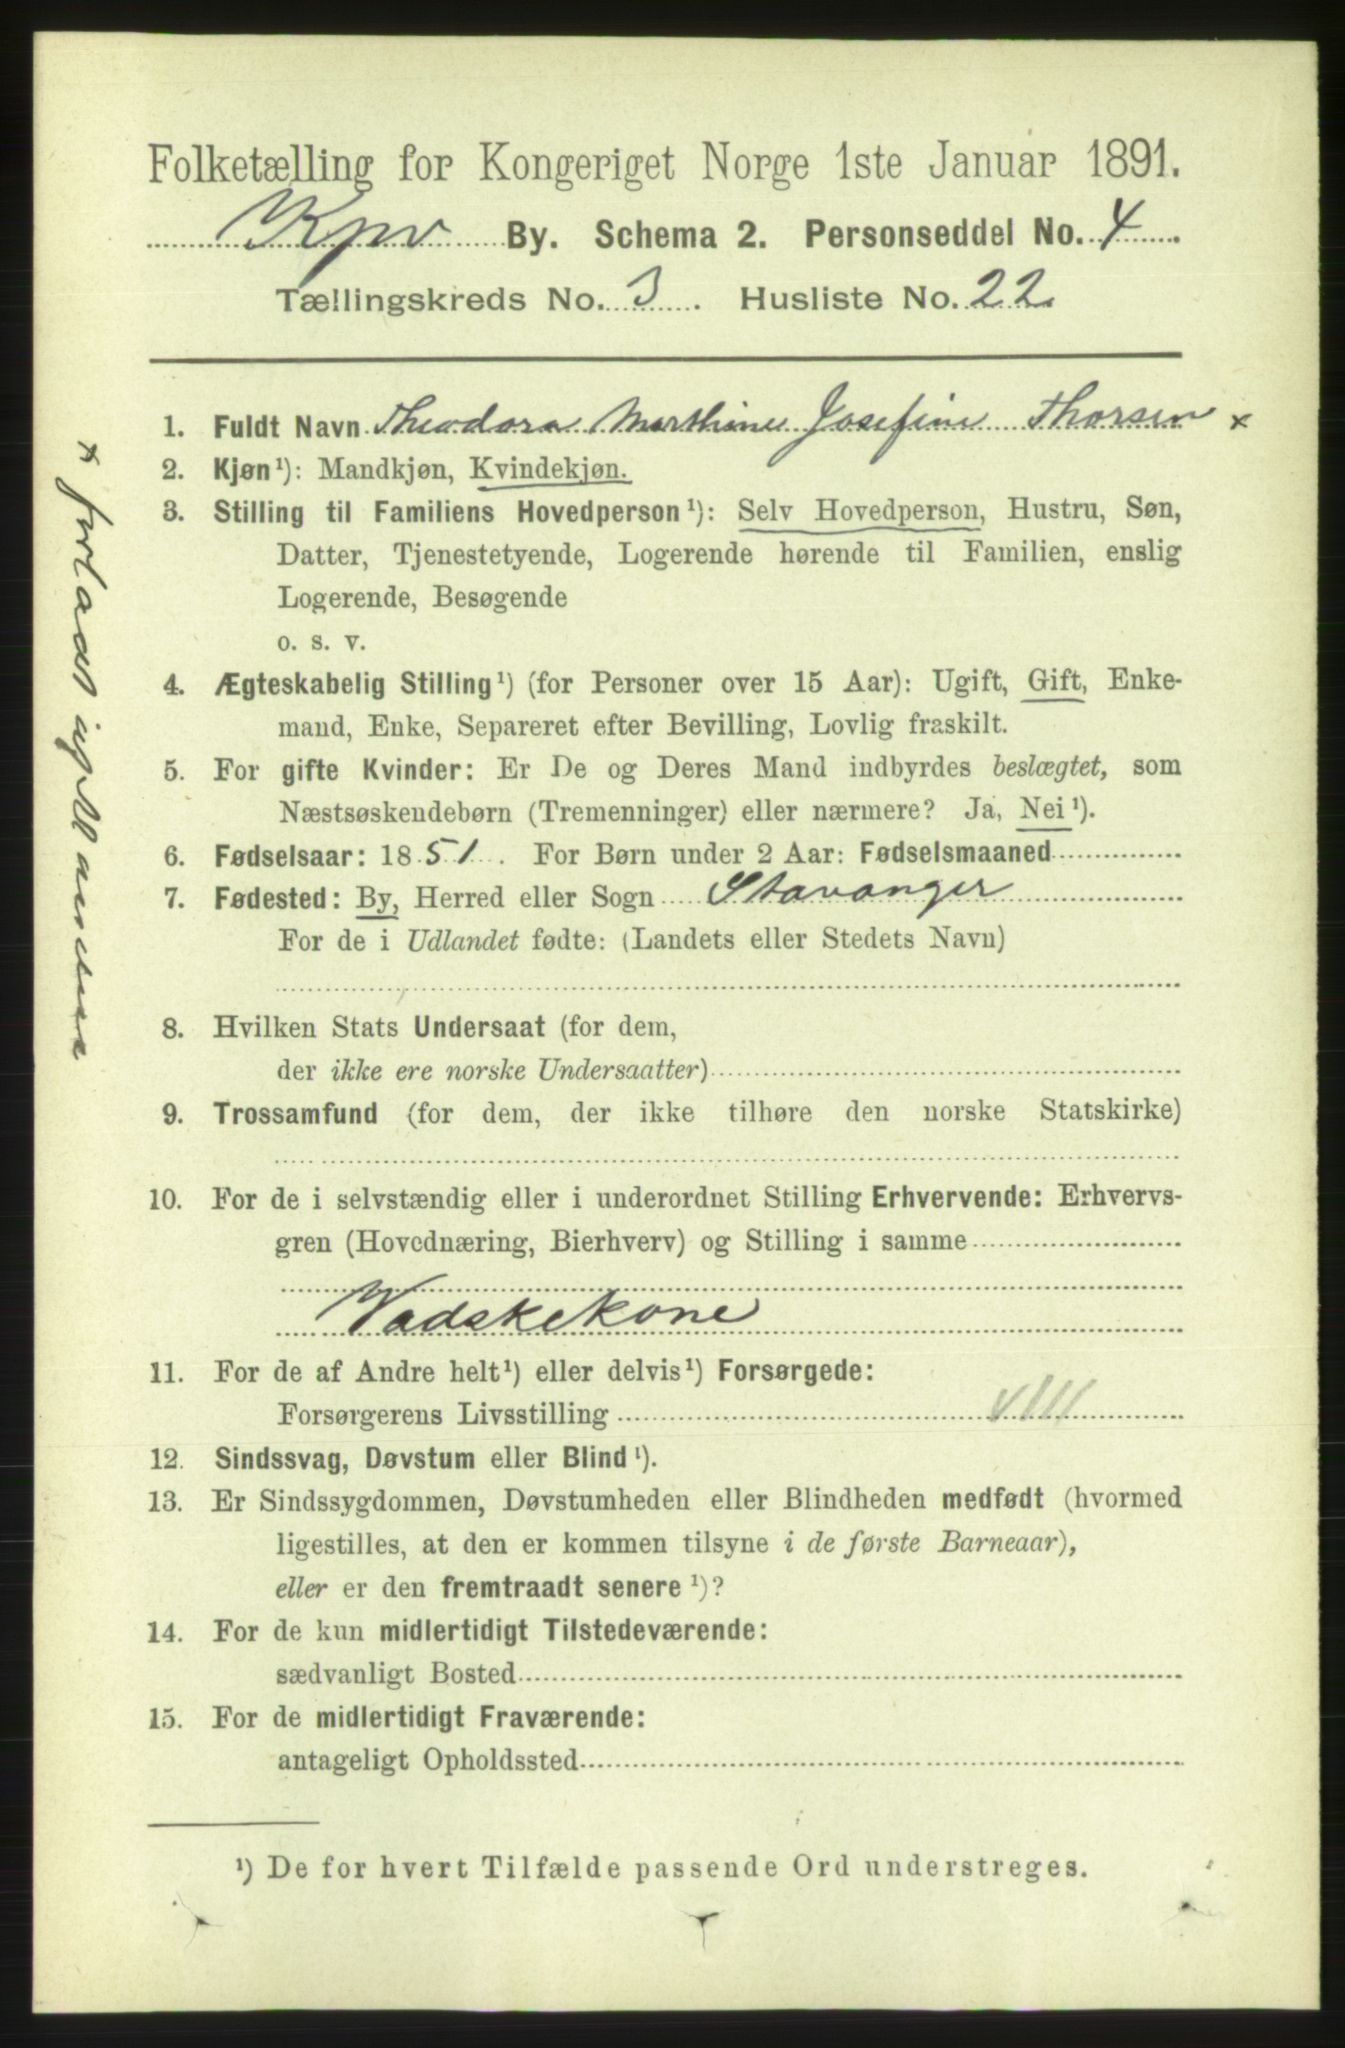 Folketælling for Kongeriget Norge 1ste Januar 1891.
Kpv By. Schema 2. Personseddel No. 4
Tællingskreds No. 3. Husliste No. 22
1. Fuldt Navn Theodora Marthine Josefine Thorsen x
2. Kjøn¹): Mandkjøn, Kvindekjøn.
3. Stilling til Familiens Hovedperson¹): Selv Hovedperson, Hustru, Søn,
Datter, Tjenestetyende, Logerende hørende til Familien, enslig
Logerende, Besøgende
o. s. v.
4. Ægteskabelig Stilling¹) (for Personer over 15 Aar): Ugift, Gift, Enke-
mand, Enke, Separeret efter Bevilling, Lovlig fraskilt.
5. For gifte Kvinder: Er De og Deres Mand indbyrdes beslægtet, som
Næstsøskendebørn (Tremenninger) eller nærmere? Ja, Nei¹).
6. Fødselsaar: 1851. For Børn under 2 Aar: Fødselsmaaned
7. Fødested: By, Herred eller Sogn Stavanger
For de i Udlandet fødte: (Landets eller Stedets Navn)
8. Hvilken Stats Undersaat (for dem,
der ikke ere norske Undersaatter)
9. Trossamfund (for dem, der ikke tilhøre den norske Statskirke)
10. For de i selvstændig eller i underordnet Stilling Erhvervende: Erhvervs-
gren (Hovednæring, Bierhverv) og Stilling i samme
Vadskekone
11. For de af Andre helt¹) eller delvis¹) Forsørgede:
Forsørgerens Livsstilling VIII
12. Sindssvag, Døvstum eller Blind¹).
13. Er Sindssygdommen, Døvstumheden eller Blindheden medfødt (hvormed
ligestilles, at den er kommen tilsyne i de første Barneaar),
eller er den fremtraadt senere¹)?
14. For de kun midlertidigt Tilstedeværende:
sædvanligt Bosted
15. For de midlertidigt Fraværende:
antageligt Opholdssted
¹) De for hvert Tilfælde passende Ord understreges.
x forladt